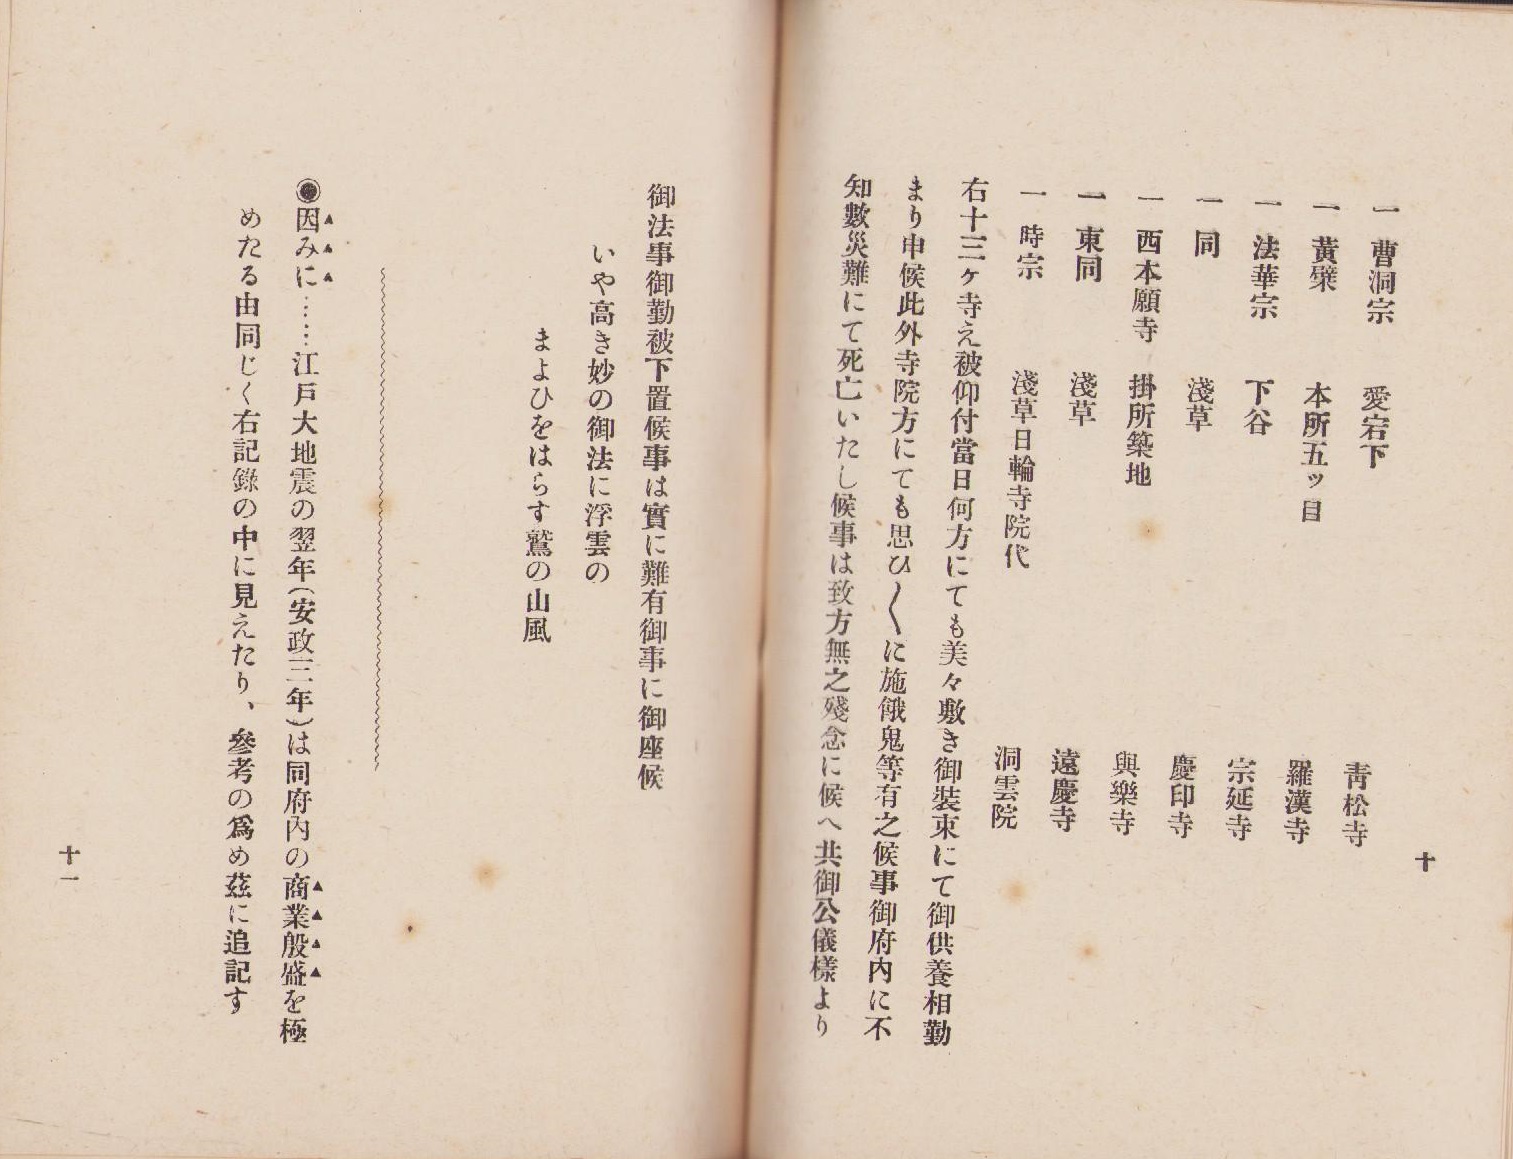 一 曹洞宗 愛宕下 靑松寺
一 黃檗 本所五ッ目 羅漢寺
一 法華宗 下谷 宗延寺
一 同 淺草 慶印寺
一 西本願寺 掛所築地 與樂寺
一 東同 淺草 遠慶寺
一 時宗 淺草日輪寺院代 洞雲院
右十三ヶ寺え被仰付當日何方にても美々敷き御裝束にて御供養相勤
まり申候此外寺院方にても思ひ〱に施餓鬼等有之候事御府內に不
知數災難にて死亡いたし候事は致方無之殘念に候へ共御公儀樣より
十
御法事御勤被下置候事は實に難有御事に御座候
いや高き妙の御法に浮雲の
まよひをはらす鷲の山風
◉因みに……江戶大地震の翌年(安政三年)は同府內の商業殷盛を極
めたる由同じく右記錄の中に見えたり、參考の爲め茲に追記す
十一